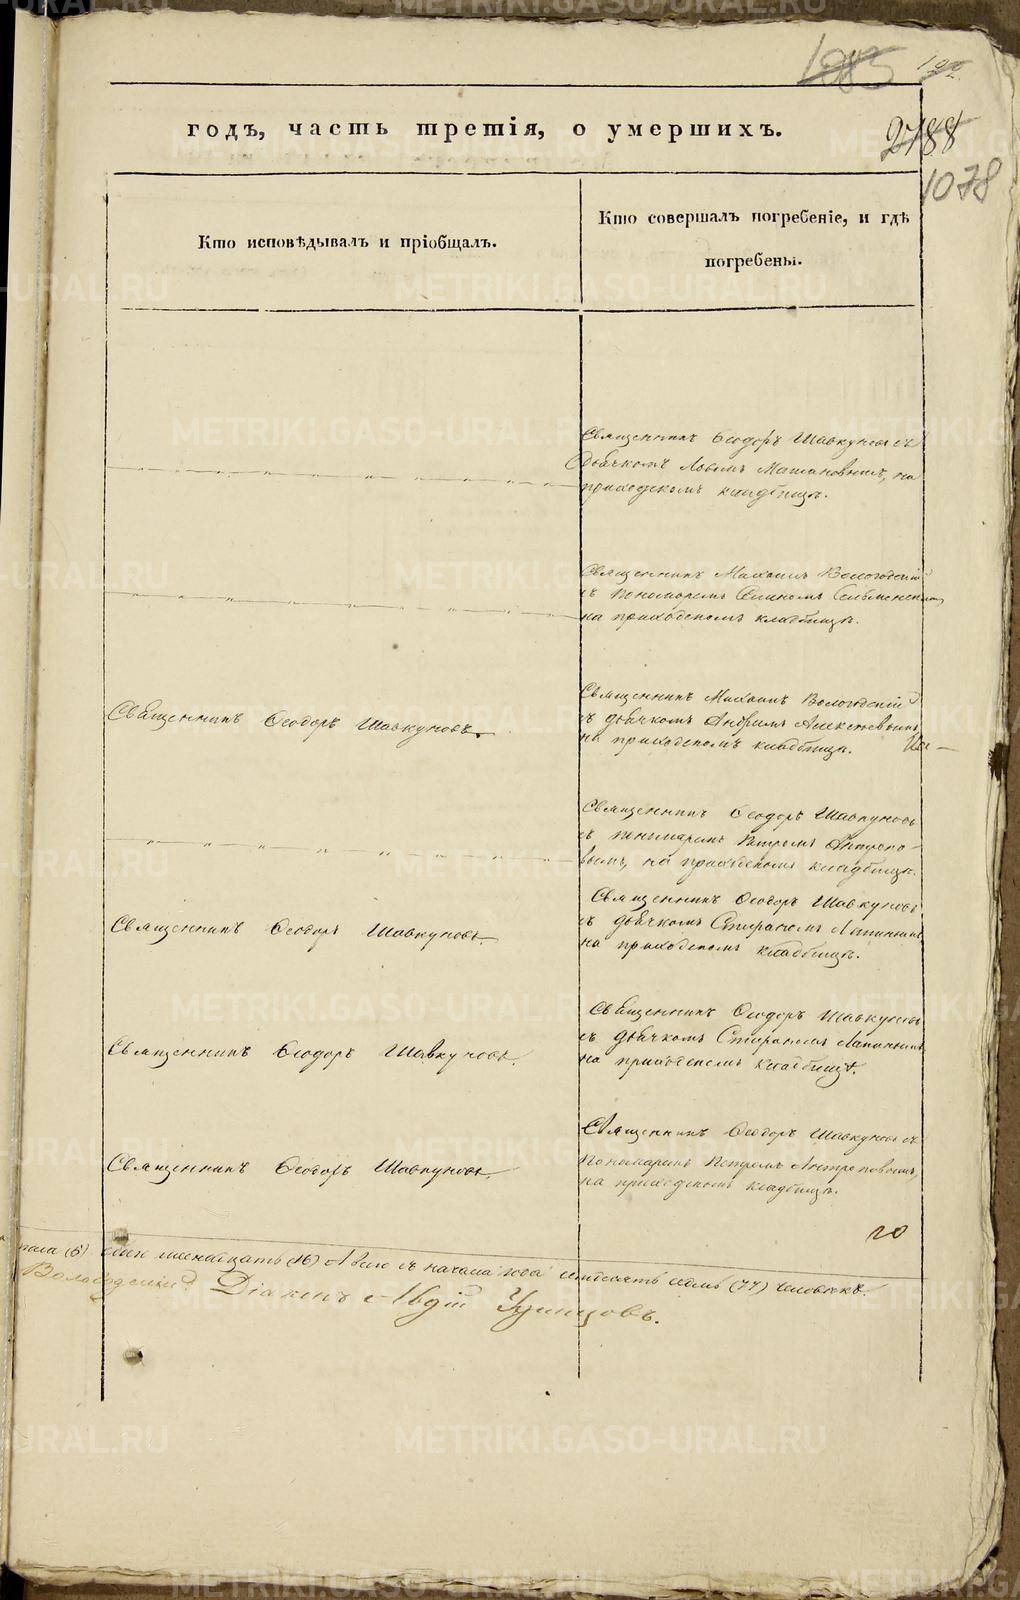 1083
190
годъ, часть третія, о умершихъ.
2188
1078
Кто исповѣдывалъ и пріобщалъ.
Кто совершалъ погребеніе, и гдѣ
погребены.
Священникъ Ѳеодоръ Шавкуновъ съ
Дьячкомъ на
приходскомъ кладбищѣ.
Священникъ Михаилъ Вологодскій
съ Пономаремъ
на приходскомъ кладбищѣ.
Священникъ Ѳеодоръ Шавкуновъ.
Священникъ Михаилъ Вологодскій
съ дьячкомъ Алексѣевымъ
на приходскомъ кладбищѣ.
Священникъ Ѳеодоръ Шавкуновъ
съ пономаремъ Петромъ Антропо-
вымъ, на приходскомъ кладбищѣ.
Священникъ Ѳеодоръ Шавкуновъ.
Священникъ Ѳеодоръ Шавкуновъ
съ дьячкомъ Лапинымъ
на приходскомъ кладбищѣ.
Священникъ Ѳеодоръ Шавкуновъ.
Священникъ Ѳеодоръ Шавкуновъ
съ дьячкомъ Лапинымъ
на приходскомъ кладбищѣ.
Священникъ Ѳеодоръ Шавкуновъ.
Священникъ Ѳеодоръ Шавкуновъ съ
Пономаремъ Петромъ Антроповымъ,
на приходскомъ кладбищѣ.
20
пола (6) (16) А всего съ начала года семьдесятъ семь (77) человѣкъ.
Вологодскій Діаконъ Авдій
METRIKI.GASO-URAL.RU